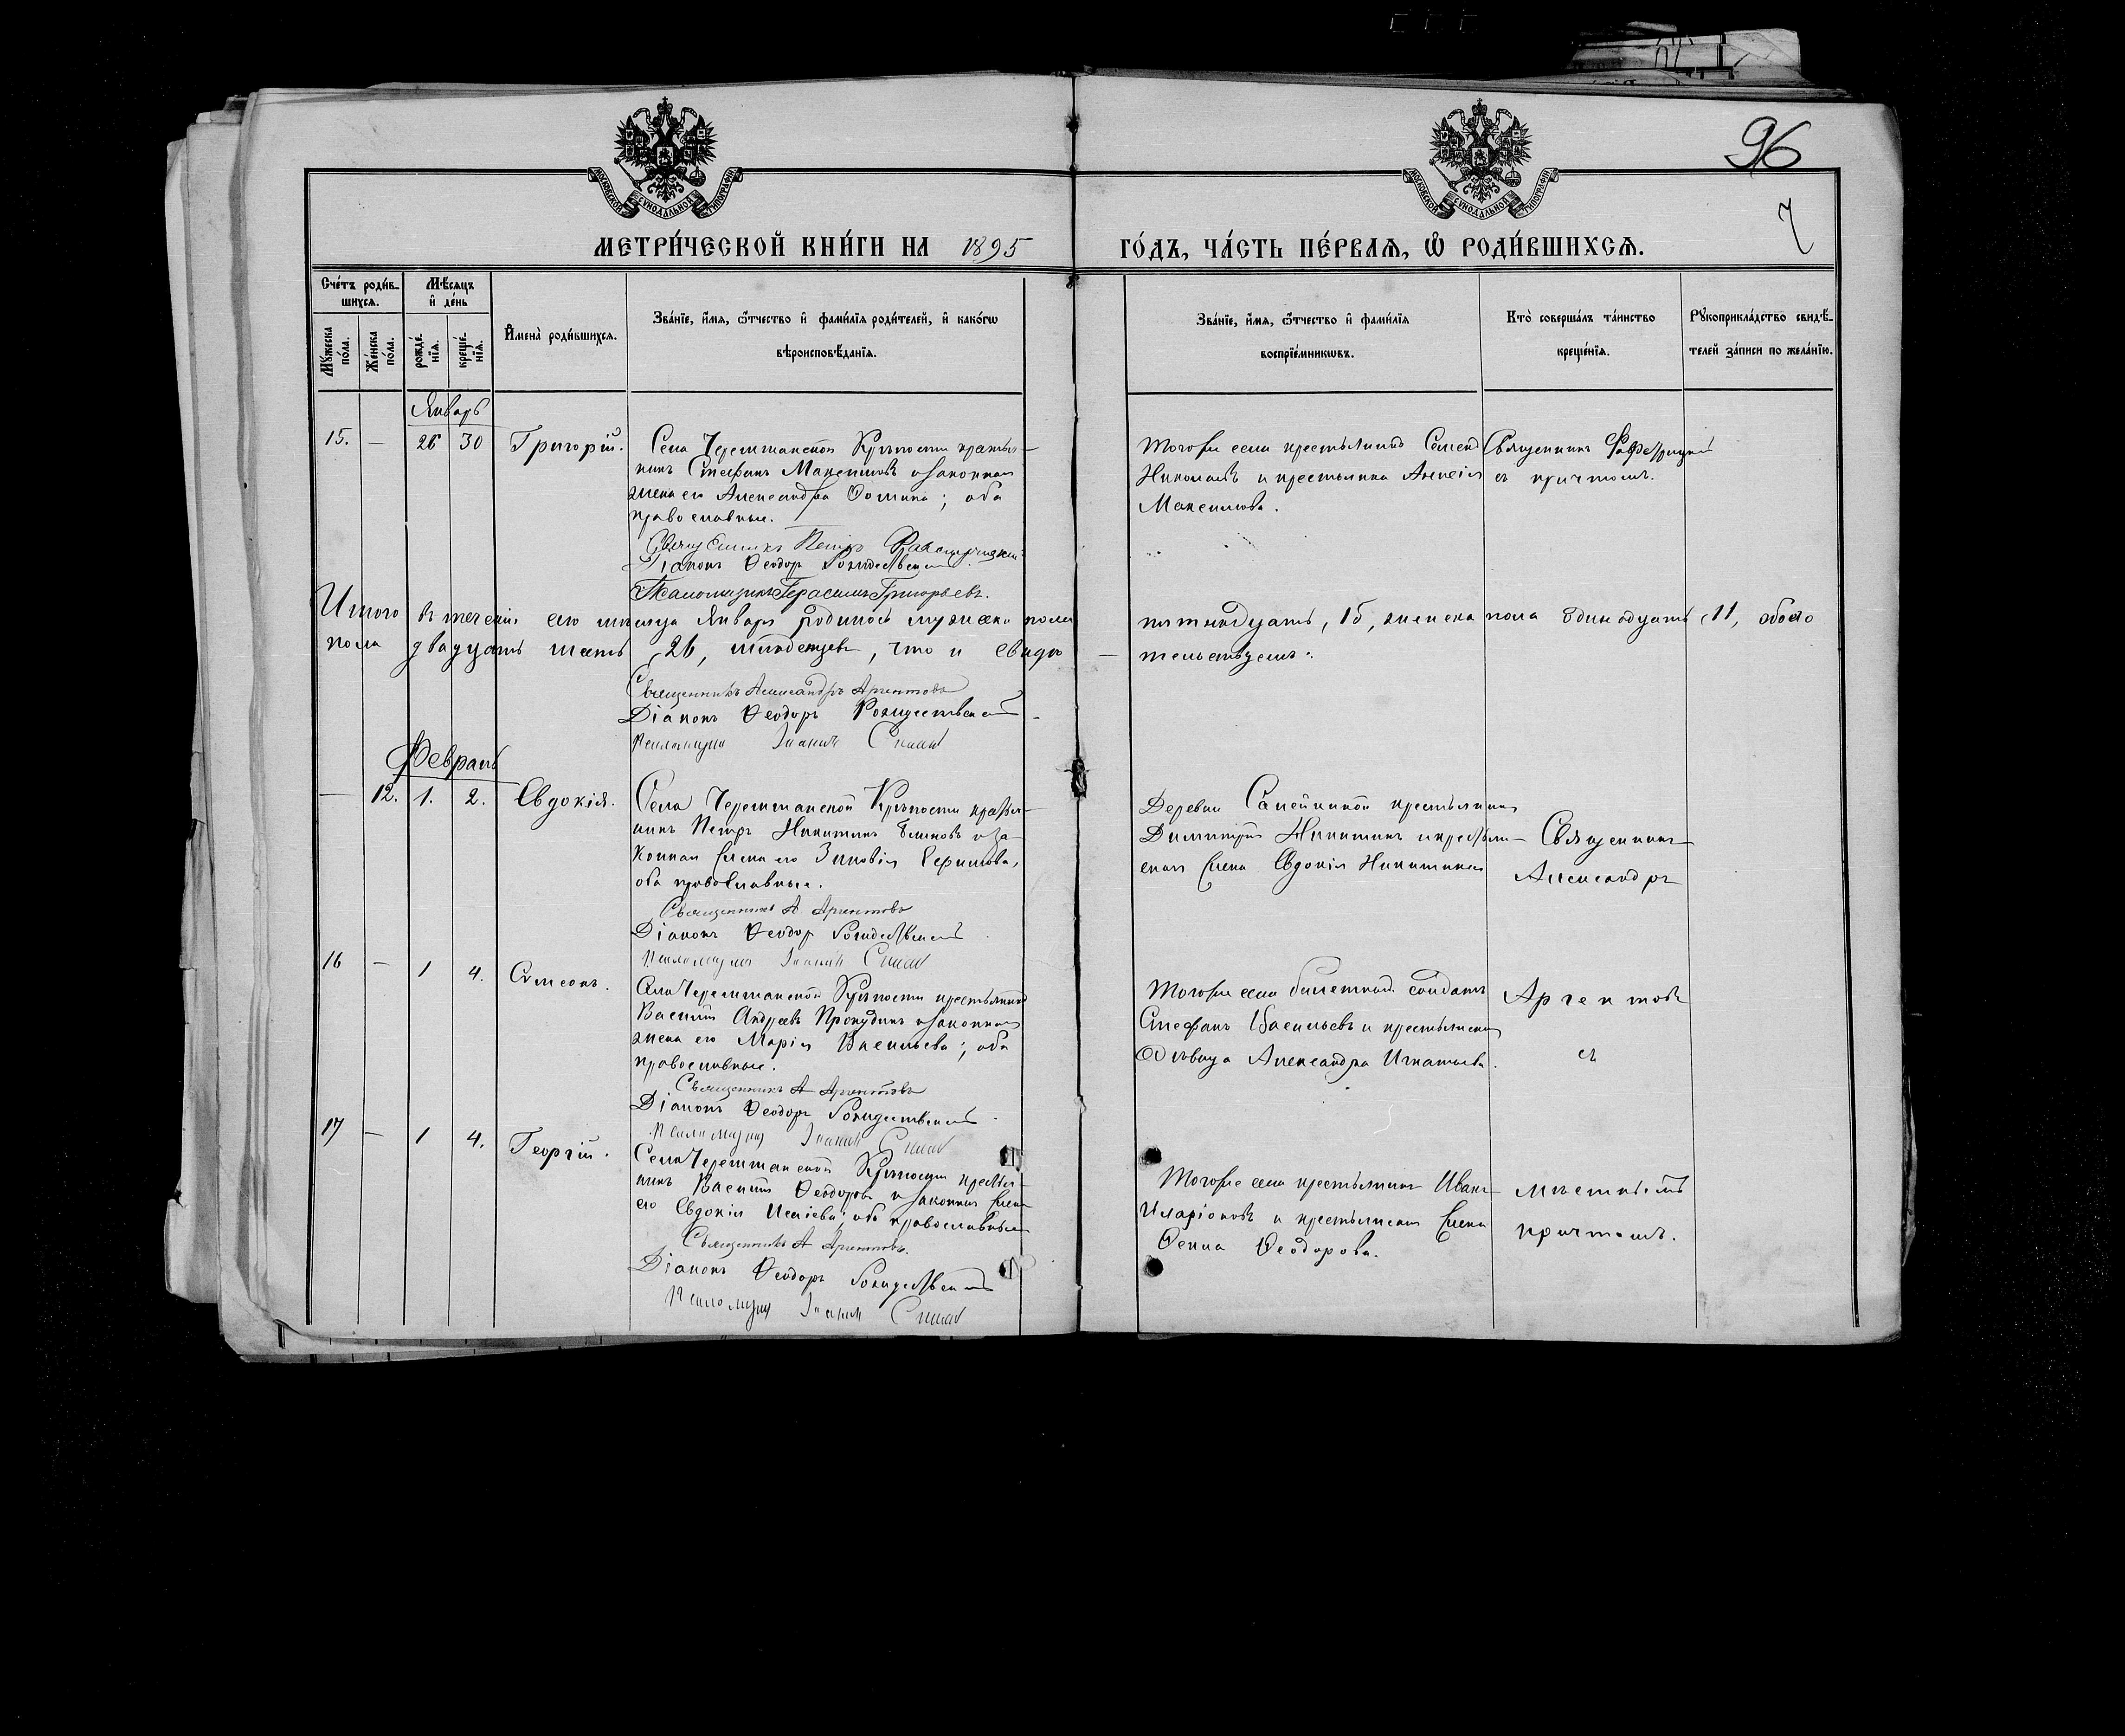 96
7
МОСКОВСКОЙ СѴНОДАЛЬНОЙ ТИПОГРАФІИ
МОСКОВСКОЙ СѴНОДАЛЬНОЙ ТИПОГРАФІИ
МЕТРИ́ЧЕСКОЙ КНИ́ГИ НА 1895 ГО́ДЪ, ЧА́СТЬ ПЕ́РВАѦ, Ѡ РОДИ́ВШИХСѦ.
Сче́тъ роди́в-
шихсѧ.
Мꙋ́жеска
по́ла.
Же́нска
по́ла.
Мѣ́сѧцъ
и҆ де́нь
рожде́-
нїѧ.
креще́-
нїѧ.
И҆мена̀ роди́вшихсѧ.
Зва́нїе, и҆́мѧ, ѻ҆́тчество и҆ фами́лїѧ роди́телей, и҆ како́гѡ
вѣроисповѣ́данїѧ.
Зва́нїе, и҆́мѧ, ѻ҆́тчество и҆ фами́лїѧ
воспрїе́мникѡвъ.
Кто̀ соверша́лъ та́инство
креще́нїѧ.
Рꙋкоприкла́дство свидѣ́-
телей за́писи по жела́нїю.
Январь
15. — 26 30 Григорій.
Села Черемшанской Крѣпости крестья-
нинъ Стефанъ Максимовъ и законная
жена его Александра Ѳомина; оба
православные.
Священникъ Петръ
Діаконъ Ѳеодоръ Рождественскій
Псаломщикъ Герасимъ Григорьевъ.
Тогоже села крестьянинъ Семенъ
Николаевъ и крестьянка Анисія
Максимова.
Священникъ
съ причтомъ.
Итого въ теченіи сего мѣсяца Января родилось мужеска пола пятнадцать, 15, женска пола одинадцать, 11, обоего
пола двадцать шесть, 26, младенцевъ, что и свидѣ- тельствуемъ:
Священникъ Александръ Аргентовъ
Діаконъ Ѳеодоръ Рождественскій
Псаломщикъ
Февраль
— 12. 1. 2. Евдокія.
Села Черемшанской Крѣпости крестья-
нинъ Петръ Никитинъ и за-
конная жена его Зиновія Ефимова,
оба православные.
Священникъ А Аргентовъ
Діаконъ Ѳеодоръ Рождественскій
Псаломщикъ
Деревни крестьянинъ
Димитрій Никитинъ и крестьян-
ская жена Евдокія Никитина
Священникъ
Александръ
16 — 1 4. Сѵмеонъ.
Села Черемшанской Крѣпости крестьянинъ
Василій Андреевъ Прокудинъ и законная
жена его Марія Васильева; оба
православные.
Священникъ А Аргентовъ
Діаконъ Ѳеодоръ Рождественскій
Псаломщикъ
Тогоже села билетный солдатъ
Стефанъ Васильевъ и крестьянская
дѣвица Александра Игнатьева.
Аргентовъ
съ
17 — 1 4. Георгій.
Села Черемшанской Крѣпости крестья-
нинъ Василій Ѳеодоровъ и законная жена
его Евдокія; оба православные
Священникъ А Аргентовъ.
Діаконъ Ѳеодоръ Рождественскій
Псаломщикъ
Тогоже села крестьянинъ Иванъ
Иларіоновъ и крестьянская жена
Ѳеодорова.
мѣстнымъ
причтомъ.